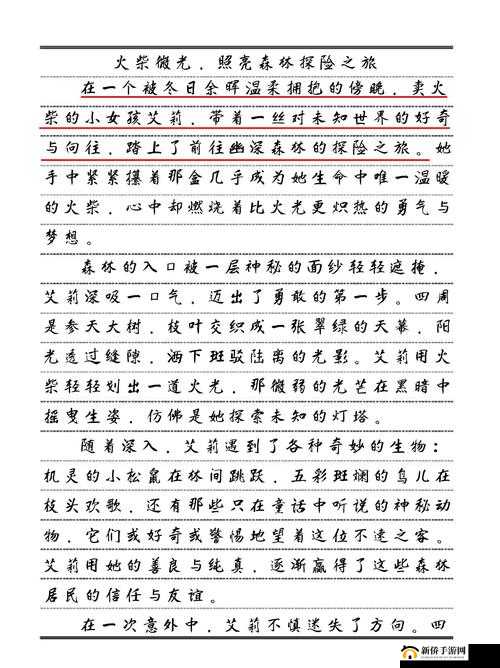 火柴微光，照亮森林探险之旅
在一个被冬日余晖温柔拥抱的傍晚，卖火
柴的小女孩艾莉，带着一丝对未知世界的好奇
与向往，踏上了前往幽深森林的探险之旅。她
手中紧紧攥着那盒几乎成为她生命中唯一温暖
的火柴，心中却燃烧着比火光更炽热的勇气与
梦想。
森林的入口被一层神秘的面纱轻轻遮掩，
艾莉深吸一口气，迈出了勇敢的第一步。四周
是参天大树，枝叶交织成一张翠绿的天幕，阳
光透过缝隙，洒下斑驳陆离的光影。艾莉用火
柴轻轻划出一道火光，那微弱的光芒在黑暗中
摇曳生姿，仿佛是她探索未知的灯塔。
随着深入，艾莉遇到了各种奇妙的生物：
机灵的小松鼠在林间跳跃，五彩斑斓的鸟儿在
枝头欢歌，还有那些只在童话中听说的神秘动
物，它们或好奇或警惕地望着这位不速之客。
艾莉用她的善良与纯真，逐渐赢得了这些森林
居民的信任与友谊。
在一次意外中，艾莉不慎迷失了方向。四
新侨手游网